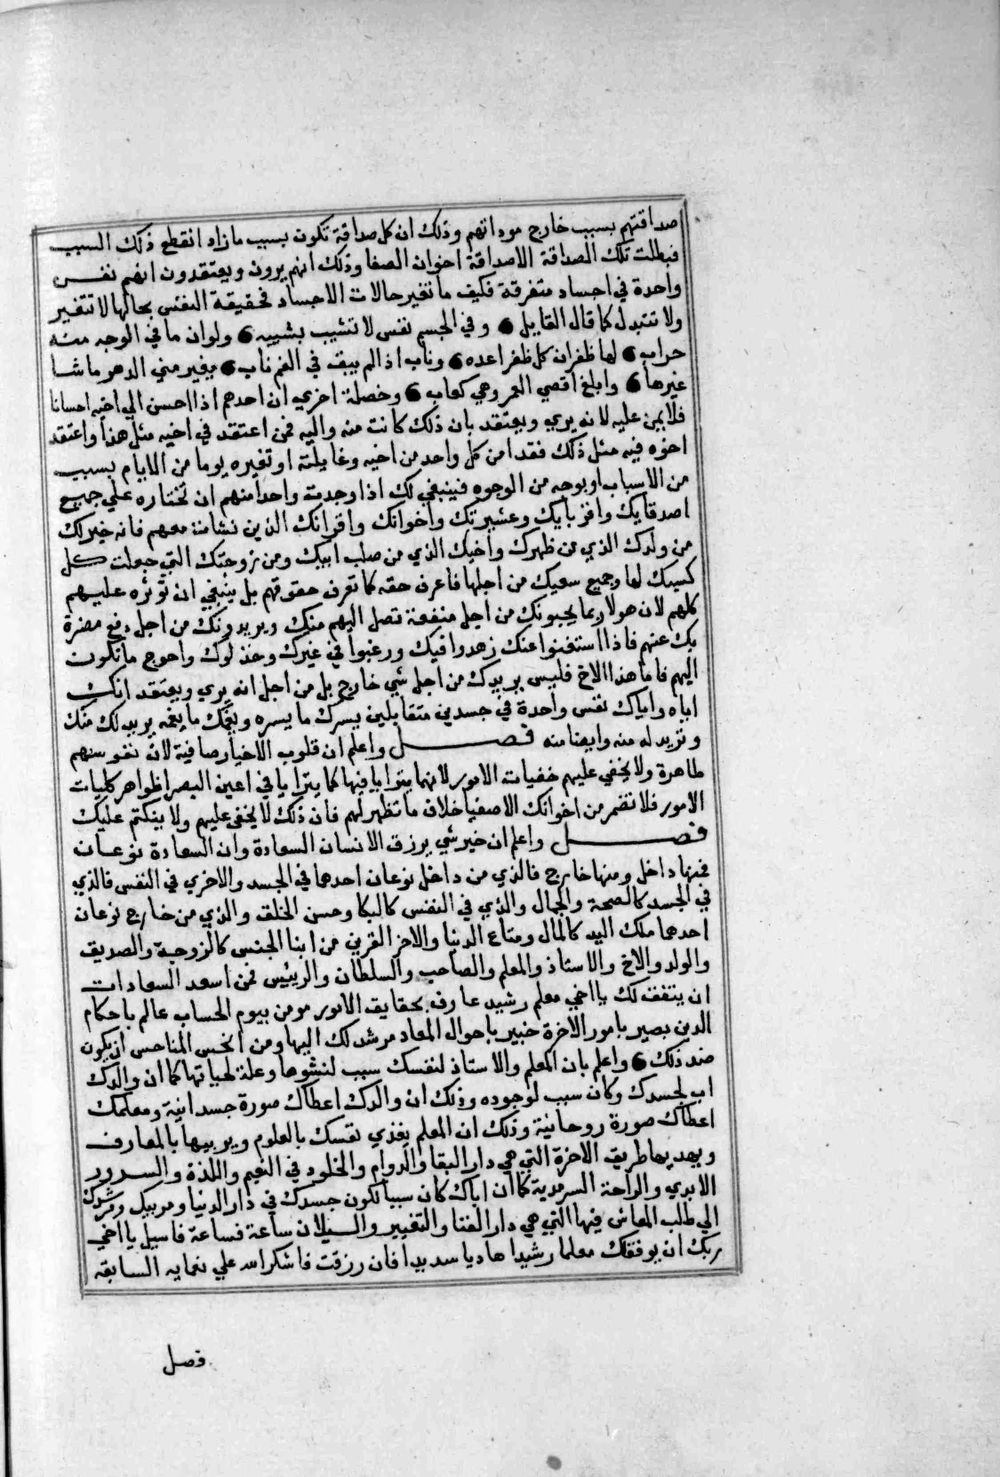 صداقتهم بسبب خارج موداتهم وذلك ان كل صداقة تكون بسبب ما زاد انقطع ذلك السبب
فبطلت تلك الصداقة الا صداقة اخوان الصفا وذلك انهم يرون ويعتقدون انهم نفس
واحدة في اجساد متفرقة فكيف ما تغير حالات الاجساد فحقيقة النفس بحالها لا تتغير
ولا تتبدل كما قال القايل 6 وفي الجسم نفس لا تشيب بشيبه 6 ولوان ما في الوجه منه
حراب 6 لها ظفران كل ظفر اعده 6 وناب اذا لم يبق في الفم ناب 6 يغير مني الدهر ما شا
غيرها 6 وابلغ اقصي العمر وهي كعاب 6 وخصلة اخري ان احدهم اذا احسن الي اخيه احسانا
فلا يمن عليه لانه يري ويعتقد بان ذلك كانت منه واليه فمن اعتقد في اخيه مثل هذا واعتقد
اخوه فيه مثل ذلك فقد امن كل واحد من اخيه وغايلته او تغيره يوما من الايام بسبب
من الاسباب او بوجه من الوجوه فينبغي لك اذا وجدت واحدا منهم ان تختاره علي جميع
اصدقايك واقربايك وعشيرتك واخوانك واقرانك الذين نشات معهم فانه خير لك
من ولدك الذي من ظهرك واخيك الذي من صلب ابيك ومن زوجتك التي جعلت كل
كسبك لها وجميع سعيك من اجلها فاعرف حقه كما تعرف حقوقهم بل ينبغي ان تؤثره عليهم
كلهم لان هولا ربما يحبونك من اجل منفعة تصل اليهم منك ويريدونك من اجل دفع مضرة
بك عنهم فاذا استغنوا عنك زهدوا فيك ورغبوا في غيرك وخذلوك واحوج ما تكون
اليهم فاما هذا الاخ فليس يريدك من اجل شي خارج بل من اجل انه يري ويعتقد انك
اياه واياك نفس واحدة في جسدين متقابلين يسرك ما يسره ويغمك ما يغمه يريد لك منك
وتريد له منه وايضا منه فصل واعلم ان قلوب الاخيار صافية لان نفوسهم
طاهرة ولا يخفي عليهم خفيات الامور لانها يترايا فيها كما يترايا في اعين البصرا ظواهر كليات
الامور فلا تضمر من اخوانك الاصفيا خلاف ما تظهر لهم فان ذلك لا يخفي عليهم ولا ينكتم عليك
فصل واعلم ان خير شي يرزق الانسان السعادة وان السعادة نوعان
فمنها داخل ومنها خارج فالذي من داخل نوعان احدهما في الجسد والاخري في النفس فالذي
في الجسد كالصحة والجمال والذي في النفس كالبكا وحسن الخلق والذي من خارج نوعان
احدهما ملك اليد كالمال ومتاع الدنيا والاخر القرين من ابنا الجنس كالزوجة والصديق
والولد والاخ والاستاذ والمعلم والصاحب والسلطان والرييس فمن اسعد السعادات
ان يتفق لك يا اخي معلم رشيد عارف بحقايق الامور مومن بيوم الحساب عالم باحكام
الدين بصير بامور الاخرة خبير باحوال المعاد مرشد لك اليها ومن انحس المناحس ان يكون
ضد ذلك 6 واعلم بان المعلم والاستاذ لنفسك سبب لنشوها وعلة لحياتها كما ان والدك
اب لجسدك وكان سبب لوجوده وذلك ان والدك اعطاك صورة جسدانية ومعلمك
اعطاك صورة روحانية وذلك ان المعلم يغذي نفسك بالعلوم ويربيها بالمعارف
ويهديها طريق الاخرة التي هي دار البقا والدوام والخلود في النعيم واللذة والسرور
الابدي والراحة السرمدية كما ان اباك كان سببا لكون جسدك في دار الدنيا ومربيك ومرشدك
الي طلب المعاش فيها التي هي دار الفنا والتغيير والسيلان ساعة فساعة فاسيل يا اخي
ربك ان يوفقك معلما رشيدا هاديا سديدا فان رزقت فاشكر الله علي نعمايه السابقه
فصل